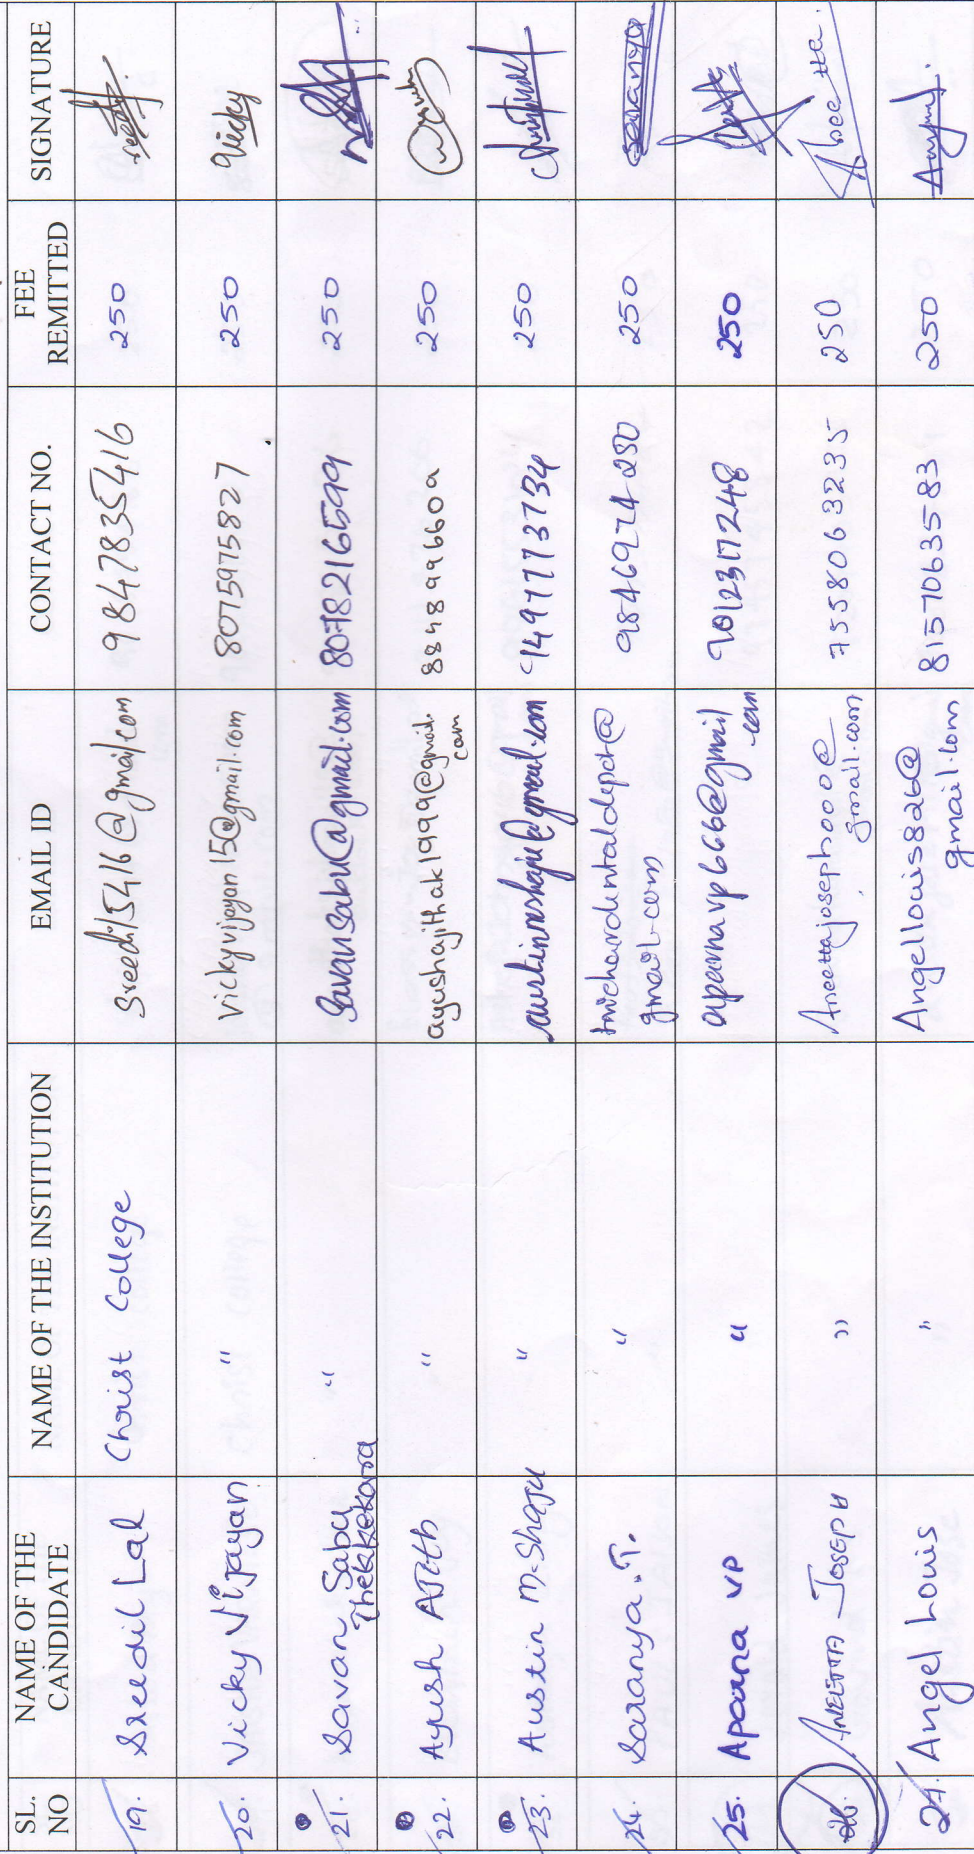 SL. NO NAME OF THE CANDIDATE NAME OF THE INSTITUTION EMAIL ID CONTACT NO. FEE REMITTED SIGNATURE
19. Sreedil Lal Christ College Sreedil5416@gmail.com 9847835416 250
20. Vicky Vijayan " Vickyvijayan15@gmail.com 8075975827 250 Vicky
21. Savan Sabu Thekkekara " Savansabu@gmail.com 8078216599 250
22. Ayush AJith " ayushajithak1999@gmail.com 8848996609 250
23. Austin M.Shaju " austinmshaju@gmail.com 9497773734 250
24. Saranya.T. " gmail.com 9846974250 250 Saranya
25. Aparna VP " aparnavp666@gmail.com 9012317248 250
26. ANEETTA JOSEPH " Aneettajoseph000@gmail.com 7558063235 250
27. Angel Louis " Angellouis826@gmail.com 8157063583 250